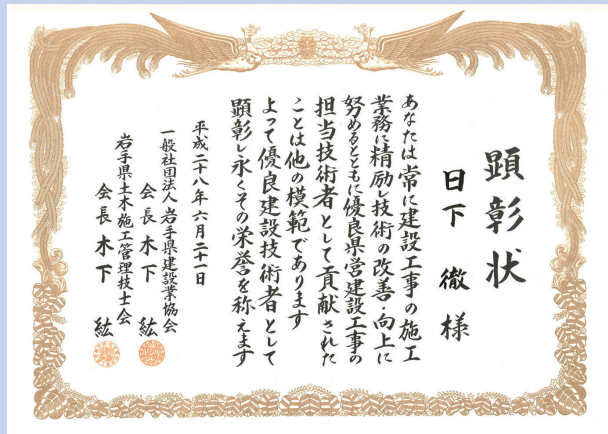 顕彰状
日下 徹 様
あなたは常に建設工事の施工
業務に精励し技術の改善・向上に
努めるとともに優良県営建設工事の
担当技術者として貢献された
ことは他の模範であります
よって優良建設技術者として
顕彰し永くその栄誉を称えます
平成二十八年六月二十一日
一般社団法人 岩手県建設業協会
会長 木下 紘
岩手県土木施工管理技士会
会長 木下 紘